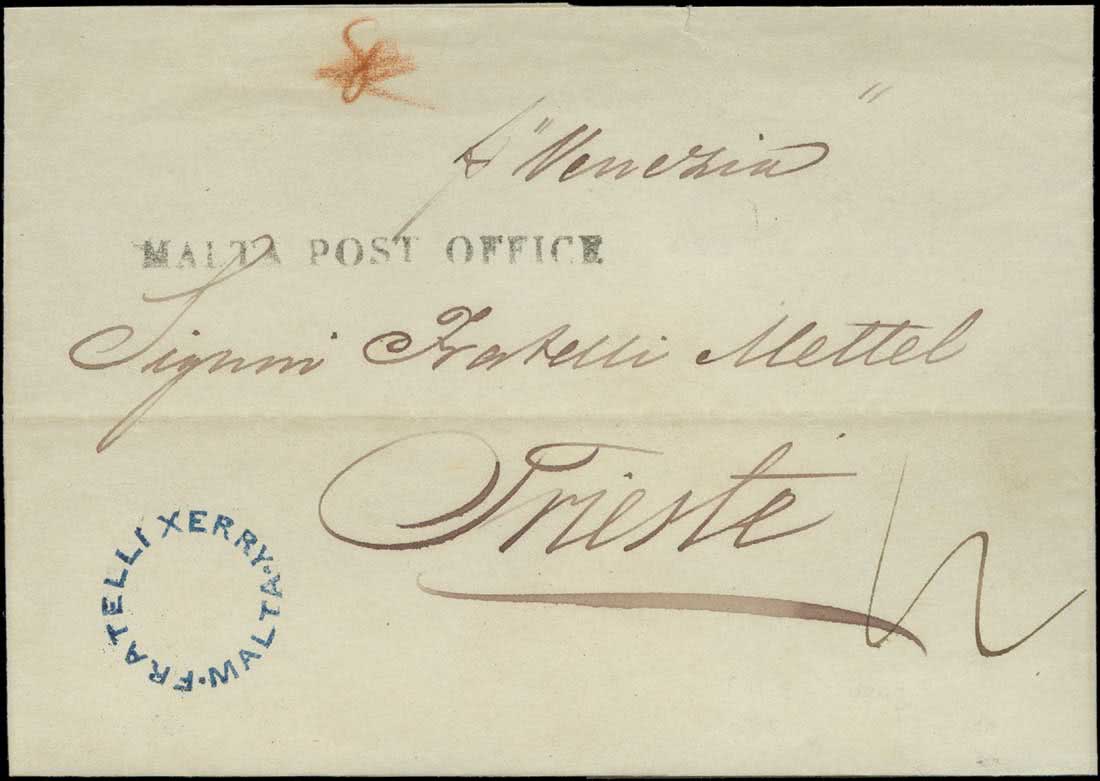 p "Venezia"
MALTA POST OFFICE
Signori Fratelli Mettel
Trieste
FRATELLI XERRY·MALTA·